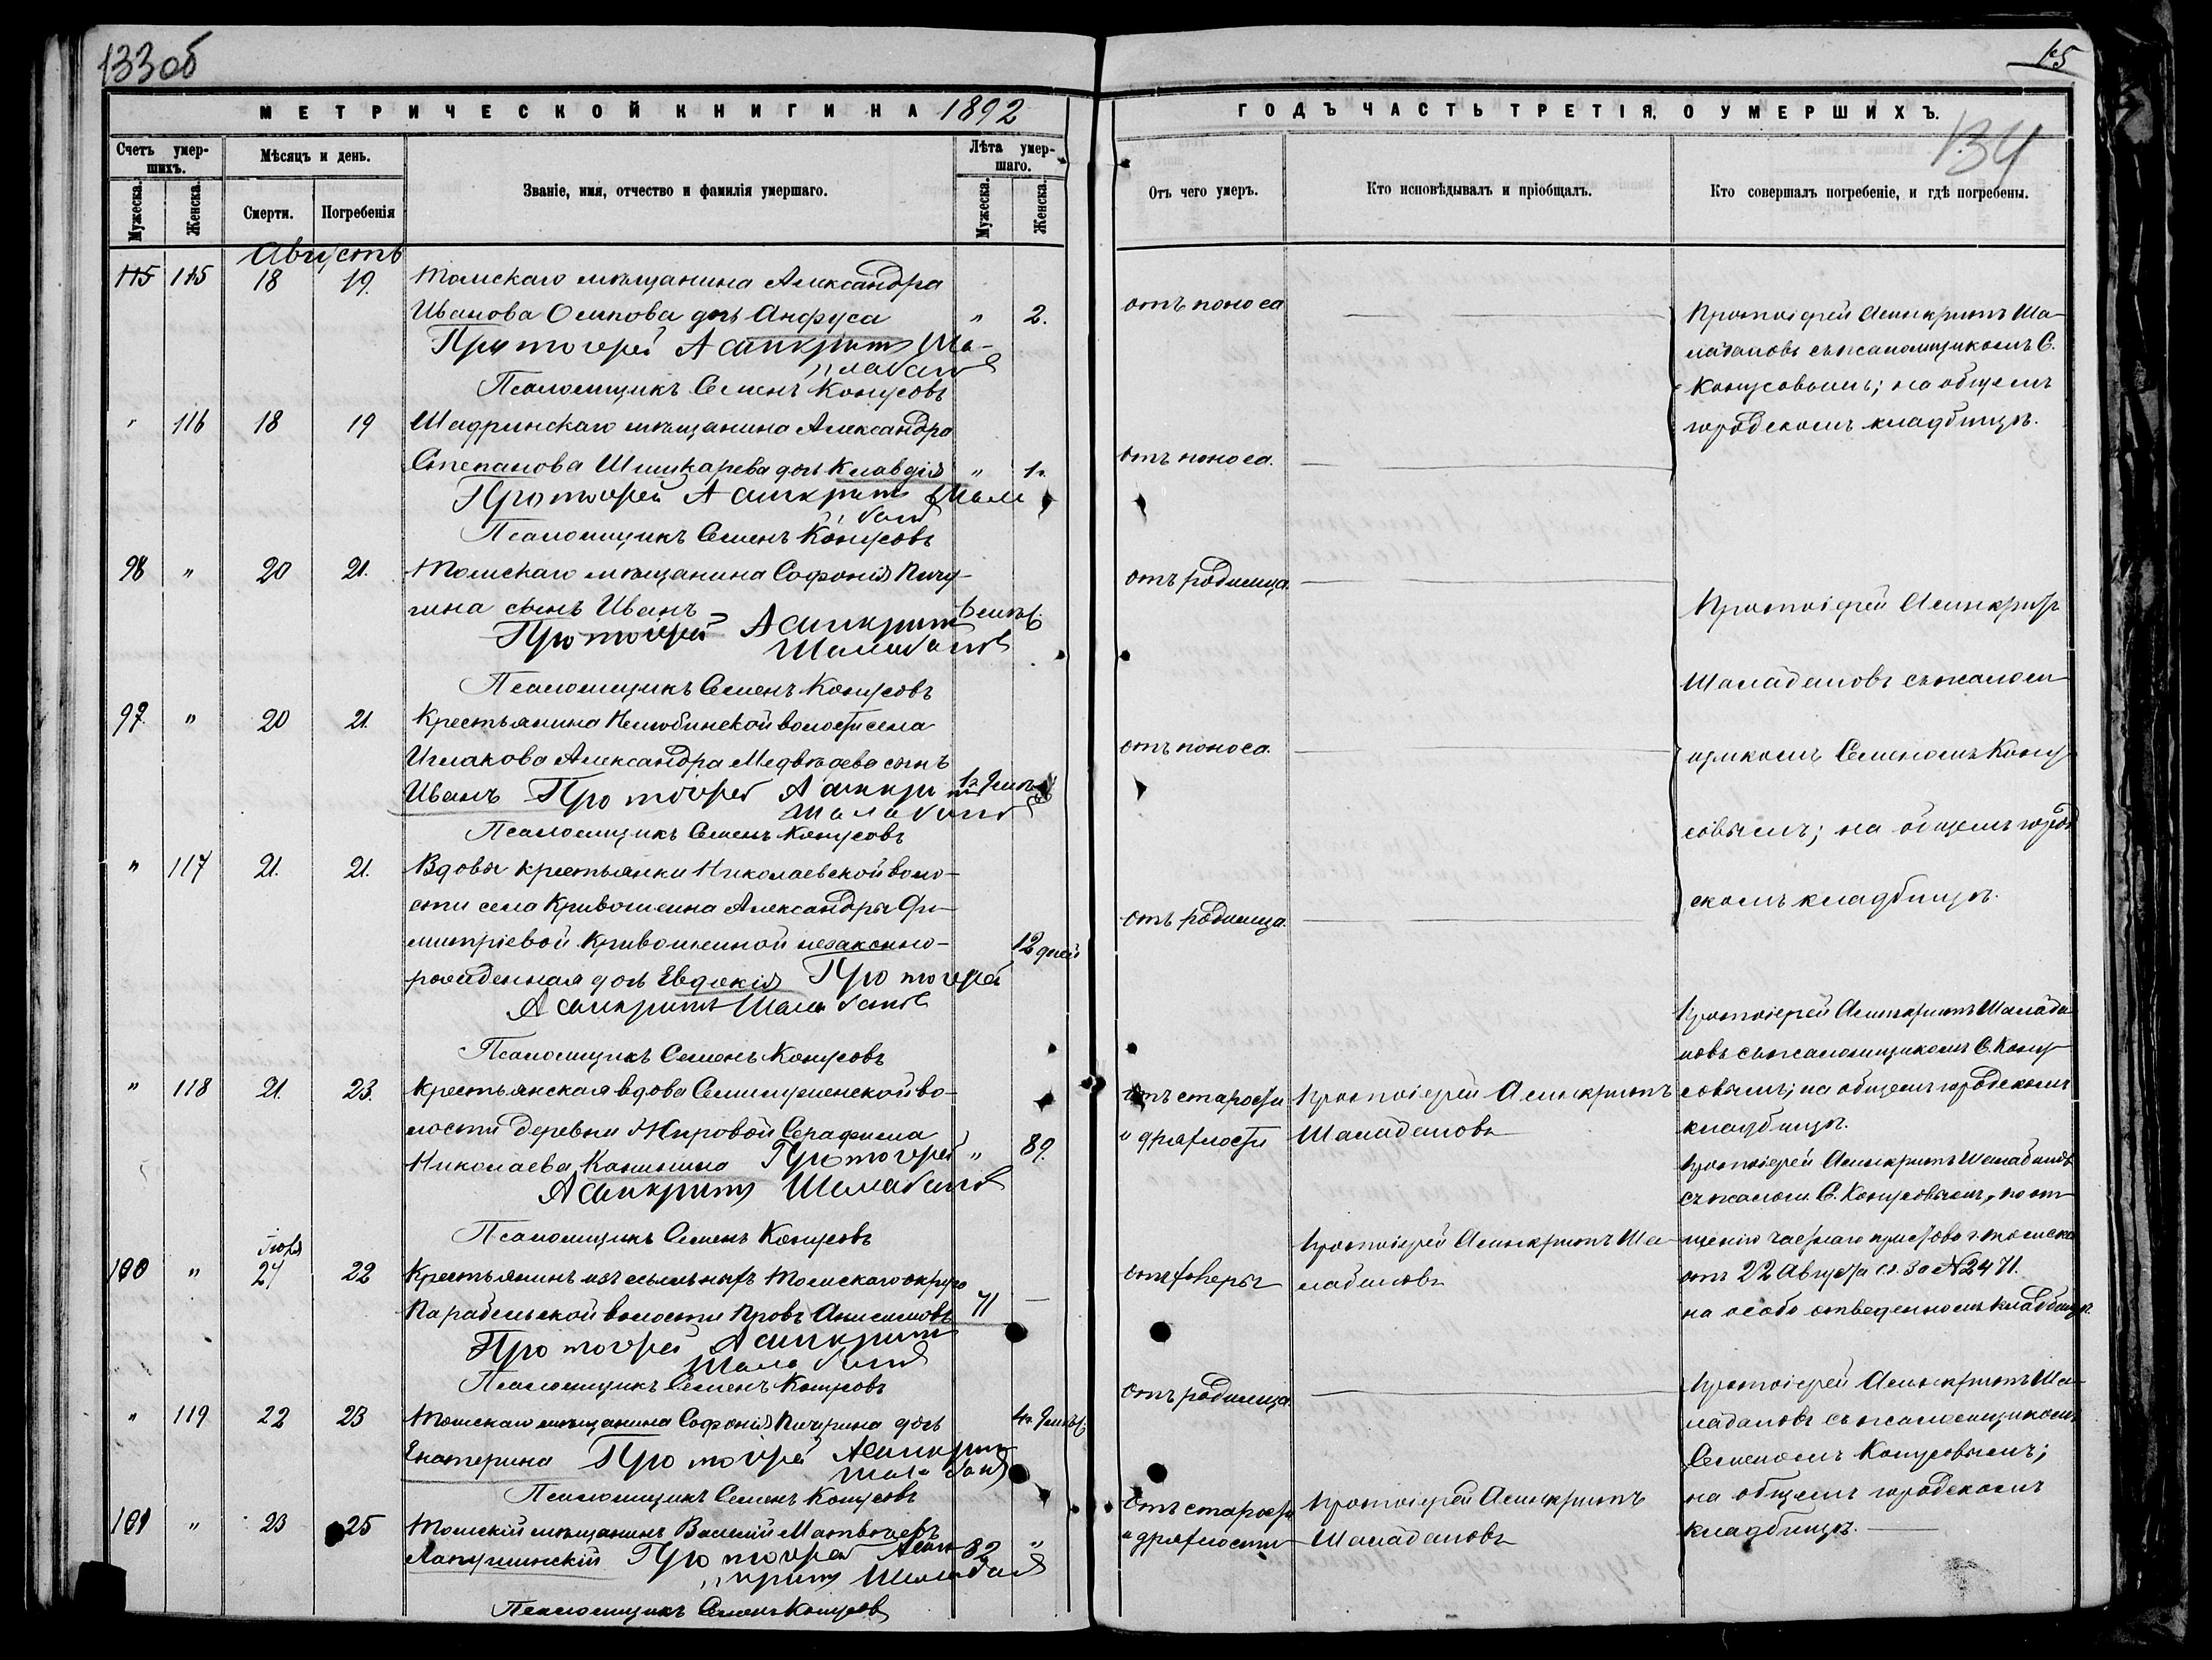 133об
15
134
МЕТРИЧЕСКОЙ КНИГИ НА 1892
ГОДЪ ЧАСТЬ ТРЕТІЯ, О УМЕРШИХЪ.
Счетъ умер-
шихъ.
Мужеска.
Женска.
Мѣсяцъ и день.
Смерти.
Погребенія
Званіе, имя, отчество и фамилія умершаго.
Лѣта умер-
шаго.
Мужеска.
Женска.
Отъ чего умеръ.
Кто исповѣдывалъ и пріобщалъ.
Кто совершалъ погребеніе, и гдѣ погребены.
Августъ
115 115 18 19. Томскаго мѣщанина Александра
Иванова Осипова дочь Анфуса " 2.
Протоіерей Асинкритъ Ша-
лабановъ
Псаломщикъ Семенъ Конусовъ
отъ поноса
Протоіерей Асинкритъ Ша-
лабановъ съ псаломщикомъ С.
Конусовымъ; на общемъ
городскомъ кладбищѣ.
" 116 18 19 Шадринскаго мѣщанина Александра
Степанова Шишкарева дочь Клавдія " 1г.
Протоіерей Асинкритъ Шала
бановъ
Псаломщикъ Семенъ Конусовъ
отъ поноса.
98 " 20 21. Томскаго мѣщанина Софонія Пичу-
гина сынъ Иванъ
Протоіерей Асинкритъ
Шалабановъ
Псаломщикъ Семенъ Конусовъ
отъ родимца
Протоіерей Асинкритъ
Шалабановъ съ псалом
щикомъ Семеномъ Кону
совымъ; на общемъ город
скомъ кладбищѣ.
97 " 20 21. Крестьянина Нелюбинской волости села
Иглакова Александра Медвѣдева сынъ
Иванъ Протоіерей Асинкритъ
Шалабановъ
Псаломщикъ Семенъ Конусовъ
отъ поноса.
" 117 21. 21. Вдовы крестьянки Николаевской воло-
сти села Кривошеина Александры Ди-
митріевой Кривошеиной незаконно-
рожденная дочь Евдокія Протоіерей
12 дней
Асинкритъ Шалабановъ
Псаломщикъ Семенъ Конусовъ
отъ родимца.
" 118 21. 23. Крестьянская вдова Семилуженской во-
лости деревни Жировой Серафима
Николаева Калинина Протоіерей " 89.
Асинкритъ Шалабановъ
Псаломщикъ Семенъ Конусовъ
отъ старости
и дряхлости
Протоіерей Асинкритъ
Шалабановъ
Протоіерей Асинкритъ Шалаба
новъ съ псаломщикомъ С. Кону
совымъ; на общемъ городскомъ
кладбищѣ.
Іюля
100 " 24 22 Крестьянинъ изъ ссыльныхъ Томскаго округа
Парабельской волости Провъ Анисимовъ 71 —
Протоіерей Асинкритъ
Шалабановъ
Псаломщикъ Семенъ Конусовъ
отъ холеры
Протоіерей Асинкритъ Ша-
лабановъ
Протоіерей Асинкритъ Шалабановъ
съ псалом. С. Конусовымъ, по от-
ношенію частнаго пристава г. Томска
отъ 22 Августа с.г. за № 2471.
на особо отведенномъ кладбищѣ.
" 119 22 23 Томскаго мѣщанина Софонія Пичугина дочь
Екатерина Протоіерей Асинкритъ
Шалабановъ
Псаломщикъ Семенъ Конусовъ
отъ родимца
Протоіерей Асинкритъ Ша-
лабановъ съ псаломщикомъ
Семеномъ Конусовымъ;
на общемъ городскомъ
кладбищѣ.
101 " 23 25 Томскій мѣщанинъ Василій Матвѣевъ
Лапушинскій Протоіерей Асин- 82 "
критъ Шалабановъ
Псаломщикъ Семенъ Конусовъ
Отъ старости
и дряхлости
Протоіерей Асинкритъ
Шалабановъ